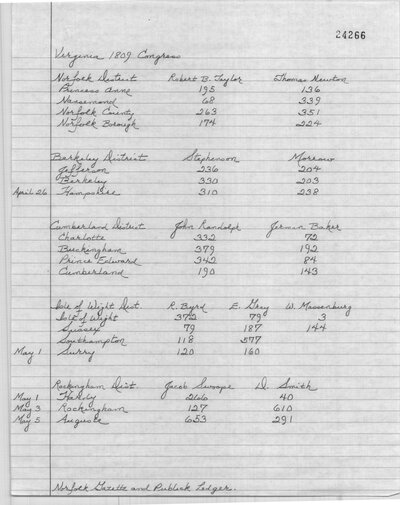 24266
Virginia 1809 Congress
Norfolk District Robert B. Taylor Thomas Newton
Princess Anne 195 136
Nansemond 68 339
Norfolk County 263 351
Norfolk Borough 174 224
Berkeley District Stephenson Morrow
Jefferson 236 204
Berkeley 330 203
April 26 Hampshire 310 238
Cumberland District John Randolph Jerman Baker
Charlotte 332 72
Buckingham 379 192
Prince Edward 342 84
Cumberland 190 143
Isle of Wight Dist. R. Byrd E. Gray W. Massenburg
Isle of Wight 372 79 3
Sussex 79 187 144
Southampton 118 577
May 1 Surry 120 160
Rockingham Dist. Jacob Swoope D. Smith
May 1 Hardy 266 40
May 3 Rockingham 127 610
May 5 Augusta 653 291
Norfolk Gazette and Publick Ledger.